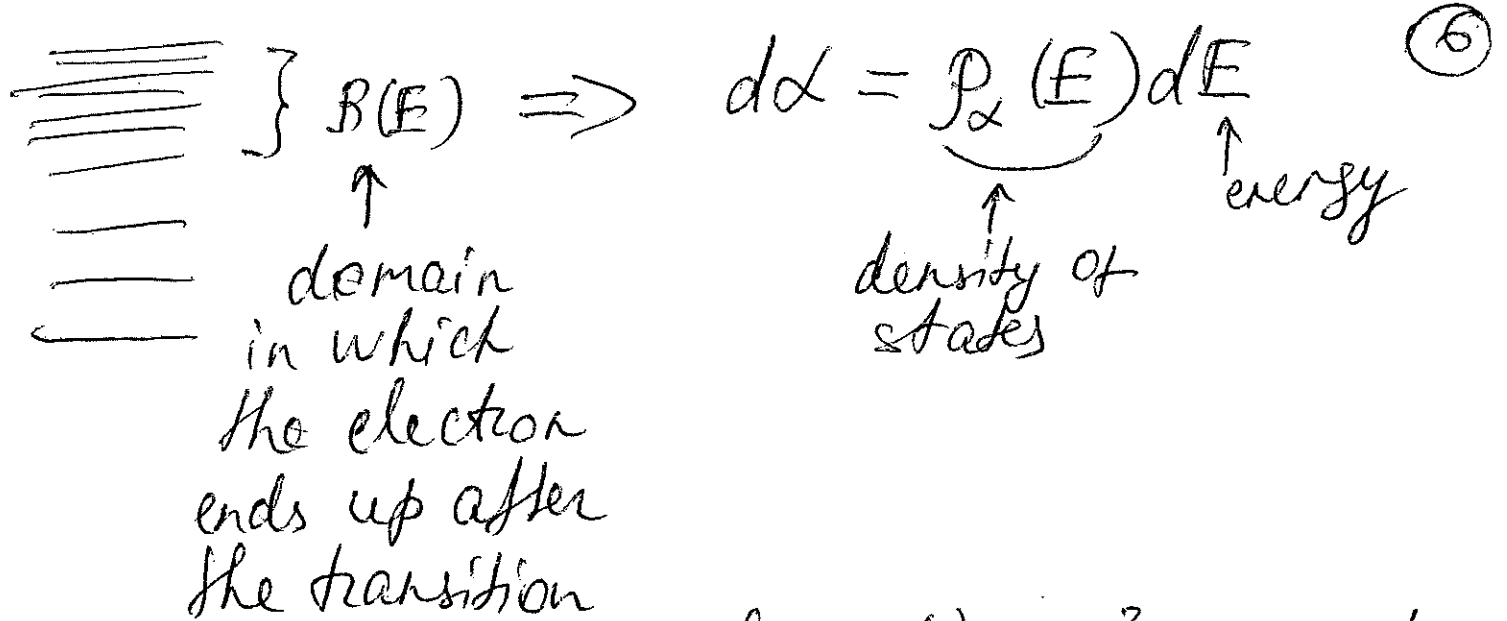 ⑥
} B(E) ⇒ dα = ρ_α(E)dE
↑
domain
in which
the electron
ends up after
the transition
↑
density of
states
↑
energy